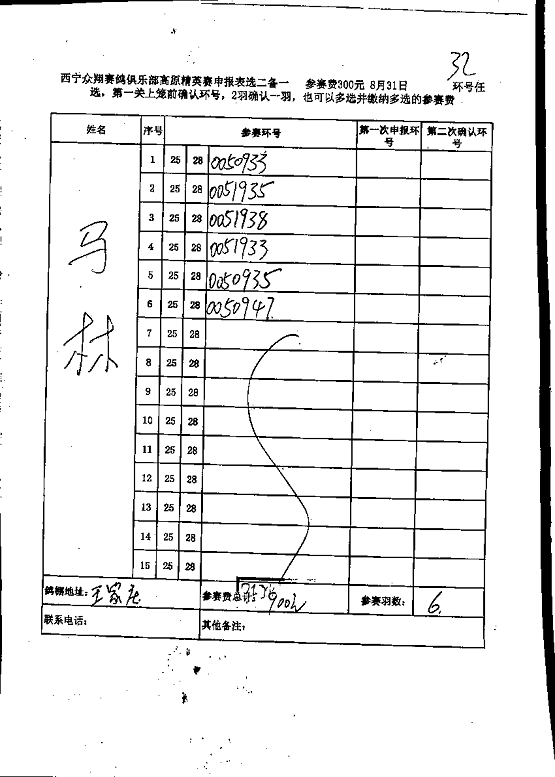 32
西宁众翔赛鸽俱乐部高原精英赛申报表选二备一 参赛费300元 8月31日 环号任
选,第一关上笼前确认环号,2羽确认一羽,也可以多选并缴纳多选的参赛费
姓名 序号 参赛环号 第一次申报环号 第二次确认环号
马林
1 25 28 0050933
2 25 28 0051935
3 25 28 0051938
4 25 28 0051933
5 25 28 0050935
6 25 28 0050947
7 25 28
8 25 28
9 25 28
10 25 28
11 25 28
12 25 28
13 25 28
14 25 28
15 25 28
鸽棚地址: 王家庄 参赛费总计: 900 参赛羽数: 6.
联系电话: 其他备注: